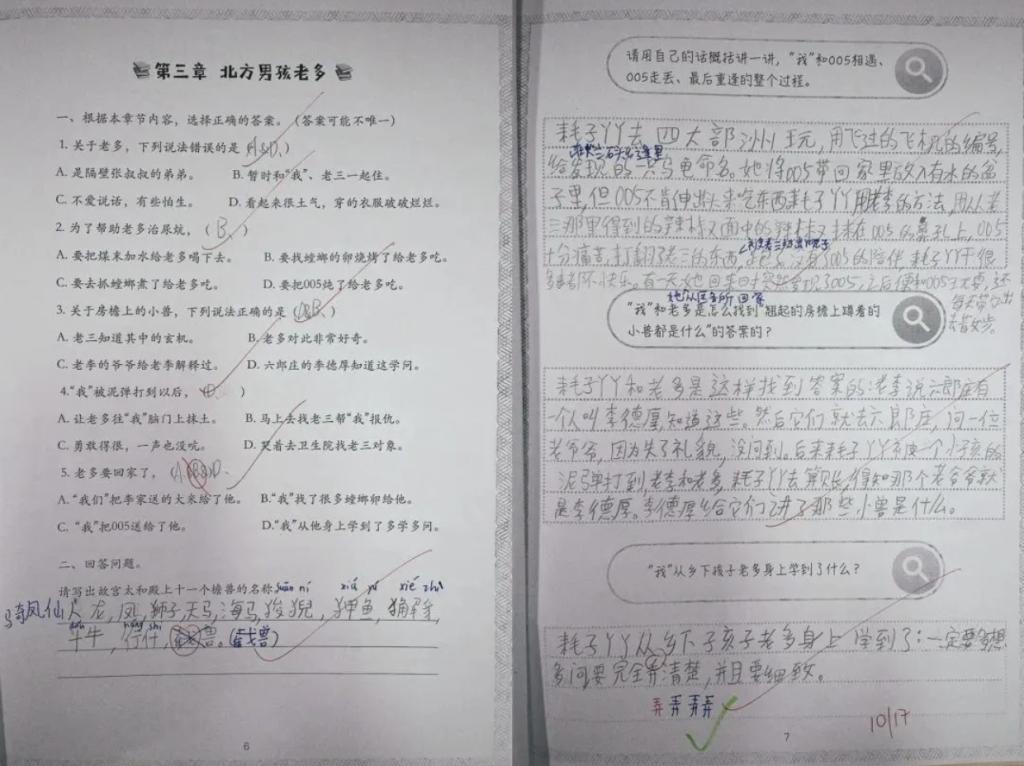 第三章 北方男孩老多
一、根据本章节内容，选择正确的答案。（答案可能不唯一）
1. 关于老多，下列说法错误的是（A D、）
A. 是隔壁张叔叔的弟弟。 B. 暂时和“我”、老三一起住。
C. 不爱说话，有些怕生。 D. 看起来很土气，穿的衣服破破烂烂。
2. 为了帮助老多治尿炕，（B、）
A. 要把煤末加水给老多喝下去。 B. 要找螳螂的卵烧烤了给老多吃。
C. 要去抓螳螂煮了给老多吃。 D. 要把005炖了给老多吃。
3. 关于房檐上的小兽，下列说法正确的是（ B、）
A. 老三知道其中的玄机。 B. 老多对此非常好奇。
C. 老李的爷爷给老李解释过。 D. 六郎庄的李德厚知道这学问。
4.“我”被泥弹打到以后，（ ）
A. 让老多往“我”脑门上抹土。 B. 马上去找老三帮“我”报仇。
C. 勇敢得很，一声也没吭。 D. 笑着去卫生院找老三对象。
5. 老多要回家了，（ D、
A.“我们”把李家送的大米给了他。 B.“我”找了很多螳螂卵给他。
C. “我”把005送给了他。 D.“我”从他身上学到了多学多问。
二、回答问题。
请写出故宫太和殿上十一个檐兽的名称 suān ní xiá yú xiè zhì
骑凤仙人 龙，凤，狮子，天马，海马，狻猊，狎鱼，獬豸，
斗牛，行什， 兽。
6
请用自己的话概括讲一讲，“我”和005相遇、
005走丢、最后重逢的整个过程。
耗子丫丫去四大部洲玩，用飞过的飞机的编号
给发现的一只乌龟命名。她将005带回家里放入有水的盆
子里，但005不肯伸出头来吃东西耗子丫丫用老李的方法，用从老
三那里得到的辣 面中的辣 抹在005的鼻孔上，005
十分痛苦，打翻了老三的东西， 没有005的陪伴 耗子丫丫很
她从医务所回家
“我”和老多是怎么找到“翘起的房檐上蹲着的
小兽都是什么”的答案的？
耗子丫丫和老多是这样找到答案的：老李说六郎庄有
一个人叫李德厚，知道这些。然后它们就去六郎庄，问一位
老爷爷，因为失了礼貌，没问到。后来耗子丫丫 被一个小孩的
泥弹打到 老李和老多，耗子丫丫去算账，得知那个老爷爷就
是李德厚。李德厚给它们讲了那些小兽是什么。
“我”从乡下孩子老多身上学到了什么？
耗子丫丫从乡下子孩子老多身上学到了：一定要多想
多问要完全弄清楚，并且要细致。
弄 弄 弄 弄
10/17
7